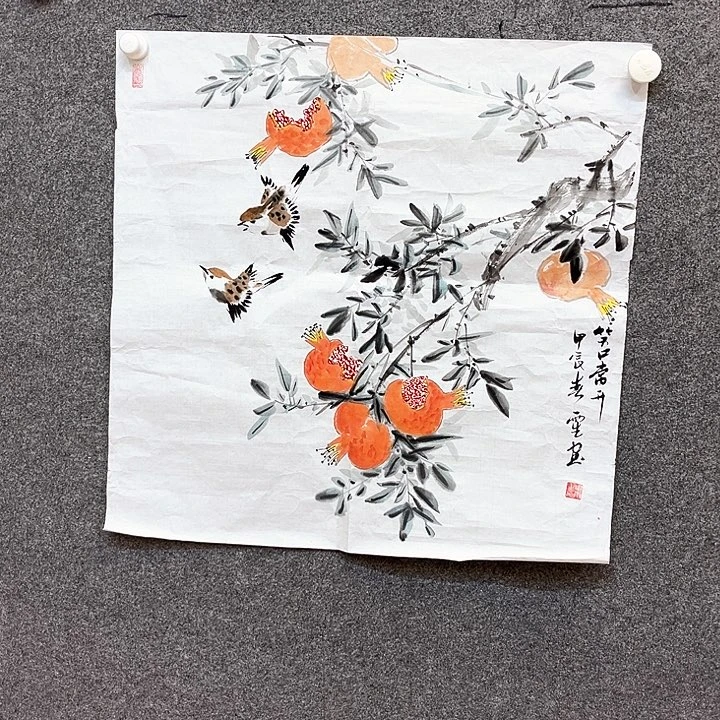 笑口常开
甲辰春 雪画